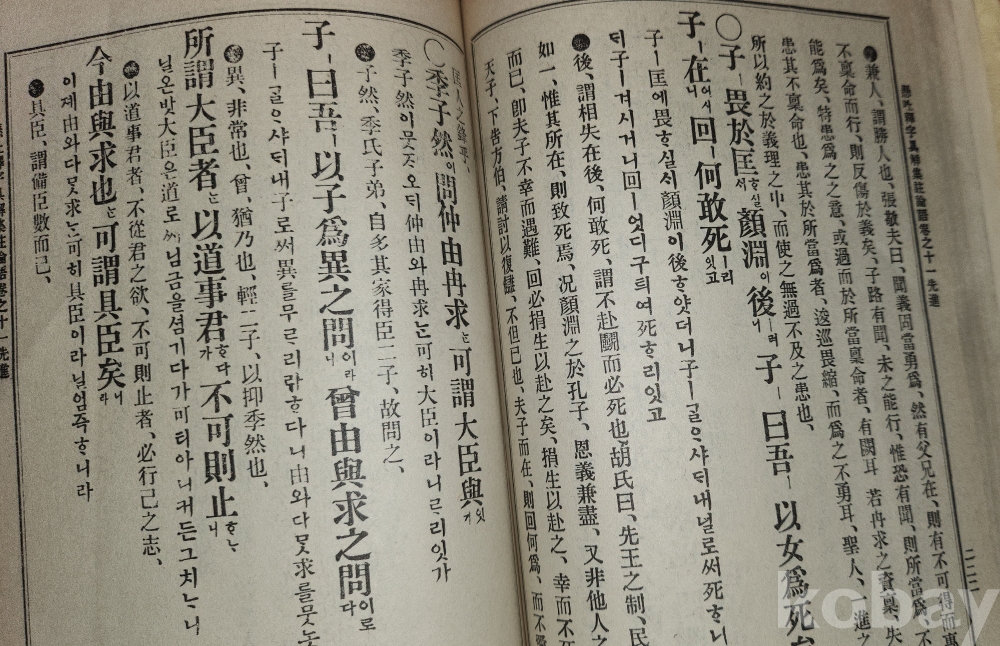 懸吐釋字具解集註論語卷之十一 先進
兼人、謂勝人也、張敬夫曰、聞義固當勇爲、然有父兄在、則有不可得而專
不稟命而行、則反傷於義矣、子路有聞、未之能行、惟恐有聞、則所當爲、不
能爲矣、特患爲之之意、或過而於所當稟命者、有闕耳 若冉求之資稟、失
患其不稟命也、患其於所當爲者、逡巡畏縮、而爲之不勇耳、聖人、一進之
所以約之於義理之中、而使之無過不及之患也、
○子ㅣ畏於匡ᄒᆞ실서 顏淵이 後ㅣ러니 子ㅣ曰吾ㅣ以女爲死矣
子ㅣ在어시니 回ㅣ何敢死ㅣ리잇고
子ㅣ匡에畏ᄒᆞ실서顏淵이後ᄒᆞ얏더니子ㅣᄀᆞᆯᄋᆞ샤ᄃᆡ내널로써死ᄒᆞ니
ᄃᆡ子ㅣ겨시거니回ㅣ엇디구틔여死ᄒᆞ리잇고
後、謂相失在後、何敢死、謂不赴鬪而必死也、胡氏曰、先王之制、民
如一、惟其所在、則致死焉、況顏淵之於孔子、恩義兼盡、又非他人之
而已、卽夫子不幸而遇難、回必捐生以赴之矣、捐生以赴之、幸而不死
天子、下告方伯、請討以復讎、不但已也、夫子而在、則回何爲、而不
○季子然이 問仲由冉求는 可謂大臣與잇기
季子然이묻ᄌᆞ오ᄃᆡ仲由와冉求ᄂᆞᆫ可히大臣이라니ᄅᆞ리잇가
子然、季氏子弟、自多其家得臣二子、故問之、
子ㅣ曰吾ㅣ以子爲異之問이라니 曾由與求之問이로다
子ㅣᄀᆞᆯᄋᆞ샤ᄃᆡ내子로써異를무르리라ᄒᆞ다니由와다ᄆᆞᆺ求를뭇놋
異、非常也、曾、猶乃也、輕二子、以抑季然也、
所謂大臣者는 以道事君ᄒᆞ다가 不可則止ᄒᆞᄂᆞ니
닐온밧大臣은道로ᄡᅥ님금을셤기다가可티아니커든그치ᄂᆞ니
以道事君者、不從君之欲、不可則止者、必行己之志、
今由與求也는 可謂具臣矣니라
이제由와다ᄆᆞᆺ求ᄂᆞᆫ可히具臣이라닐엄즉ᄒᆞ니라
具臣、謂備臣數而已、
kobay